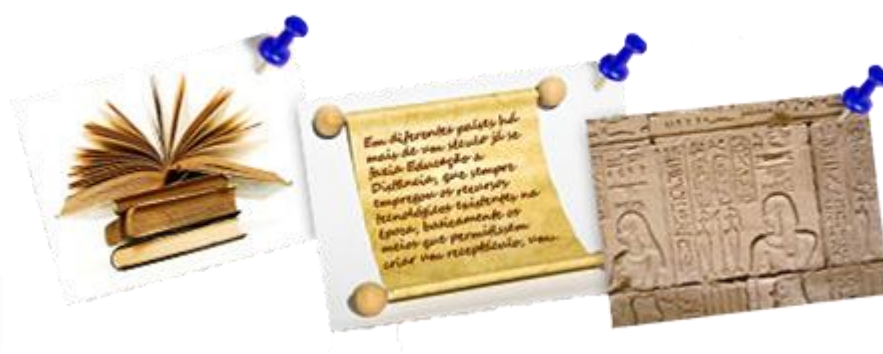 Em diferentes países há
mais de um século já se
fazia Educação a
Distância, que sempre
empregou os recursos
tecnológicos existentes na
época, basicamente os
meios que permitissem
criar um receptáculo, um..